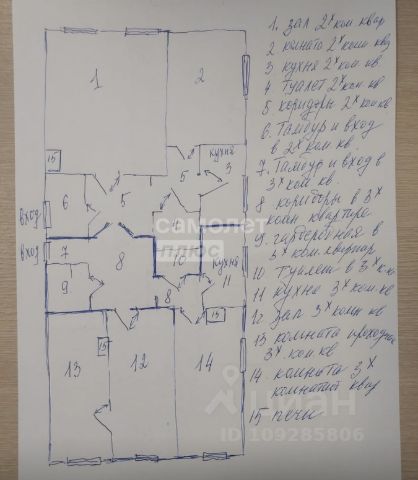 1
2
кухня
3
15
6
5
5
4
вход
вход
7
8
10
кухня
11
9
8
15
15
13
12
14
1. зал 2х ком квар
2 комната 2х комн кв
3 кухня 2х ком. кв
4 туалет 2х ком кв
5 коридоры 2х ком кв
6. Тамбур и вход
в 2х ком кв.
7. Тамбур и вход в
3х ком кв.
8 коридоры в 3х
комн квартире
9. гардеробная в
3х ком. квартир
10 туалет в 3х к.к
11 кухня 3х ком.кв
12 зал 3х комн кв
13 комната проходная
3х. ком кв
14. комната 3х
комнатной квар
15 печи
самолет
плюс
циан
ID 109285806